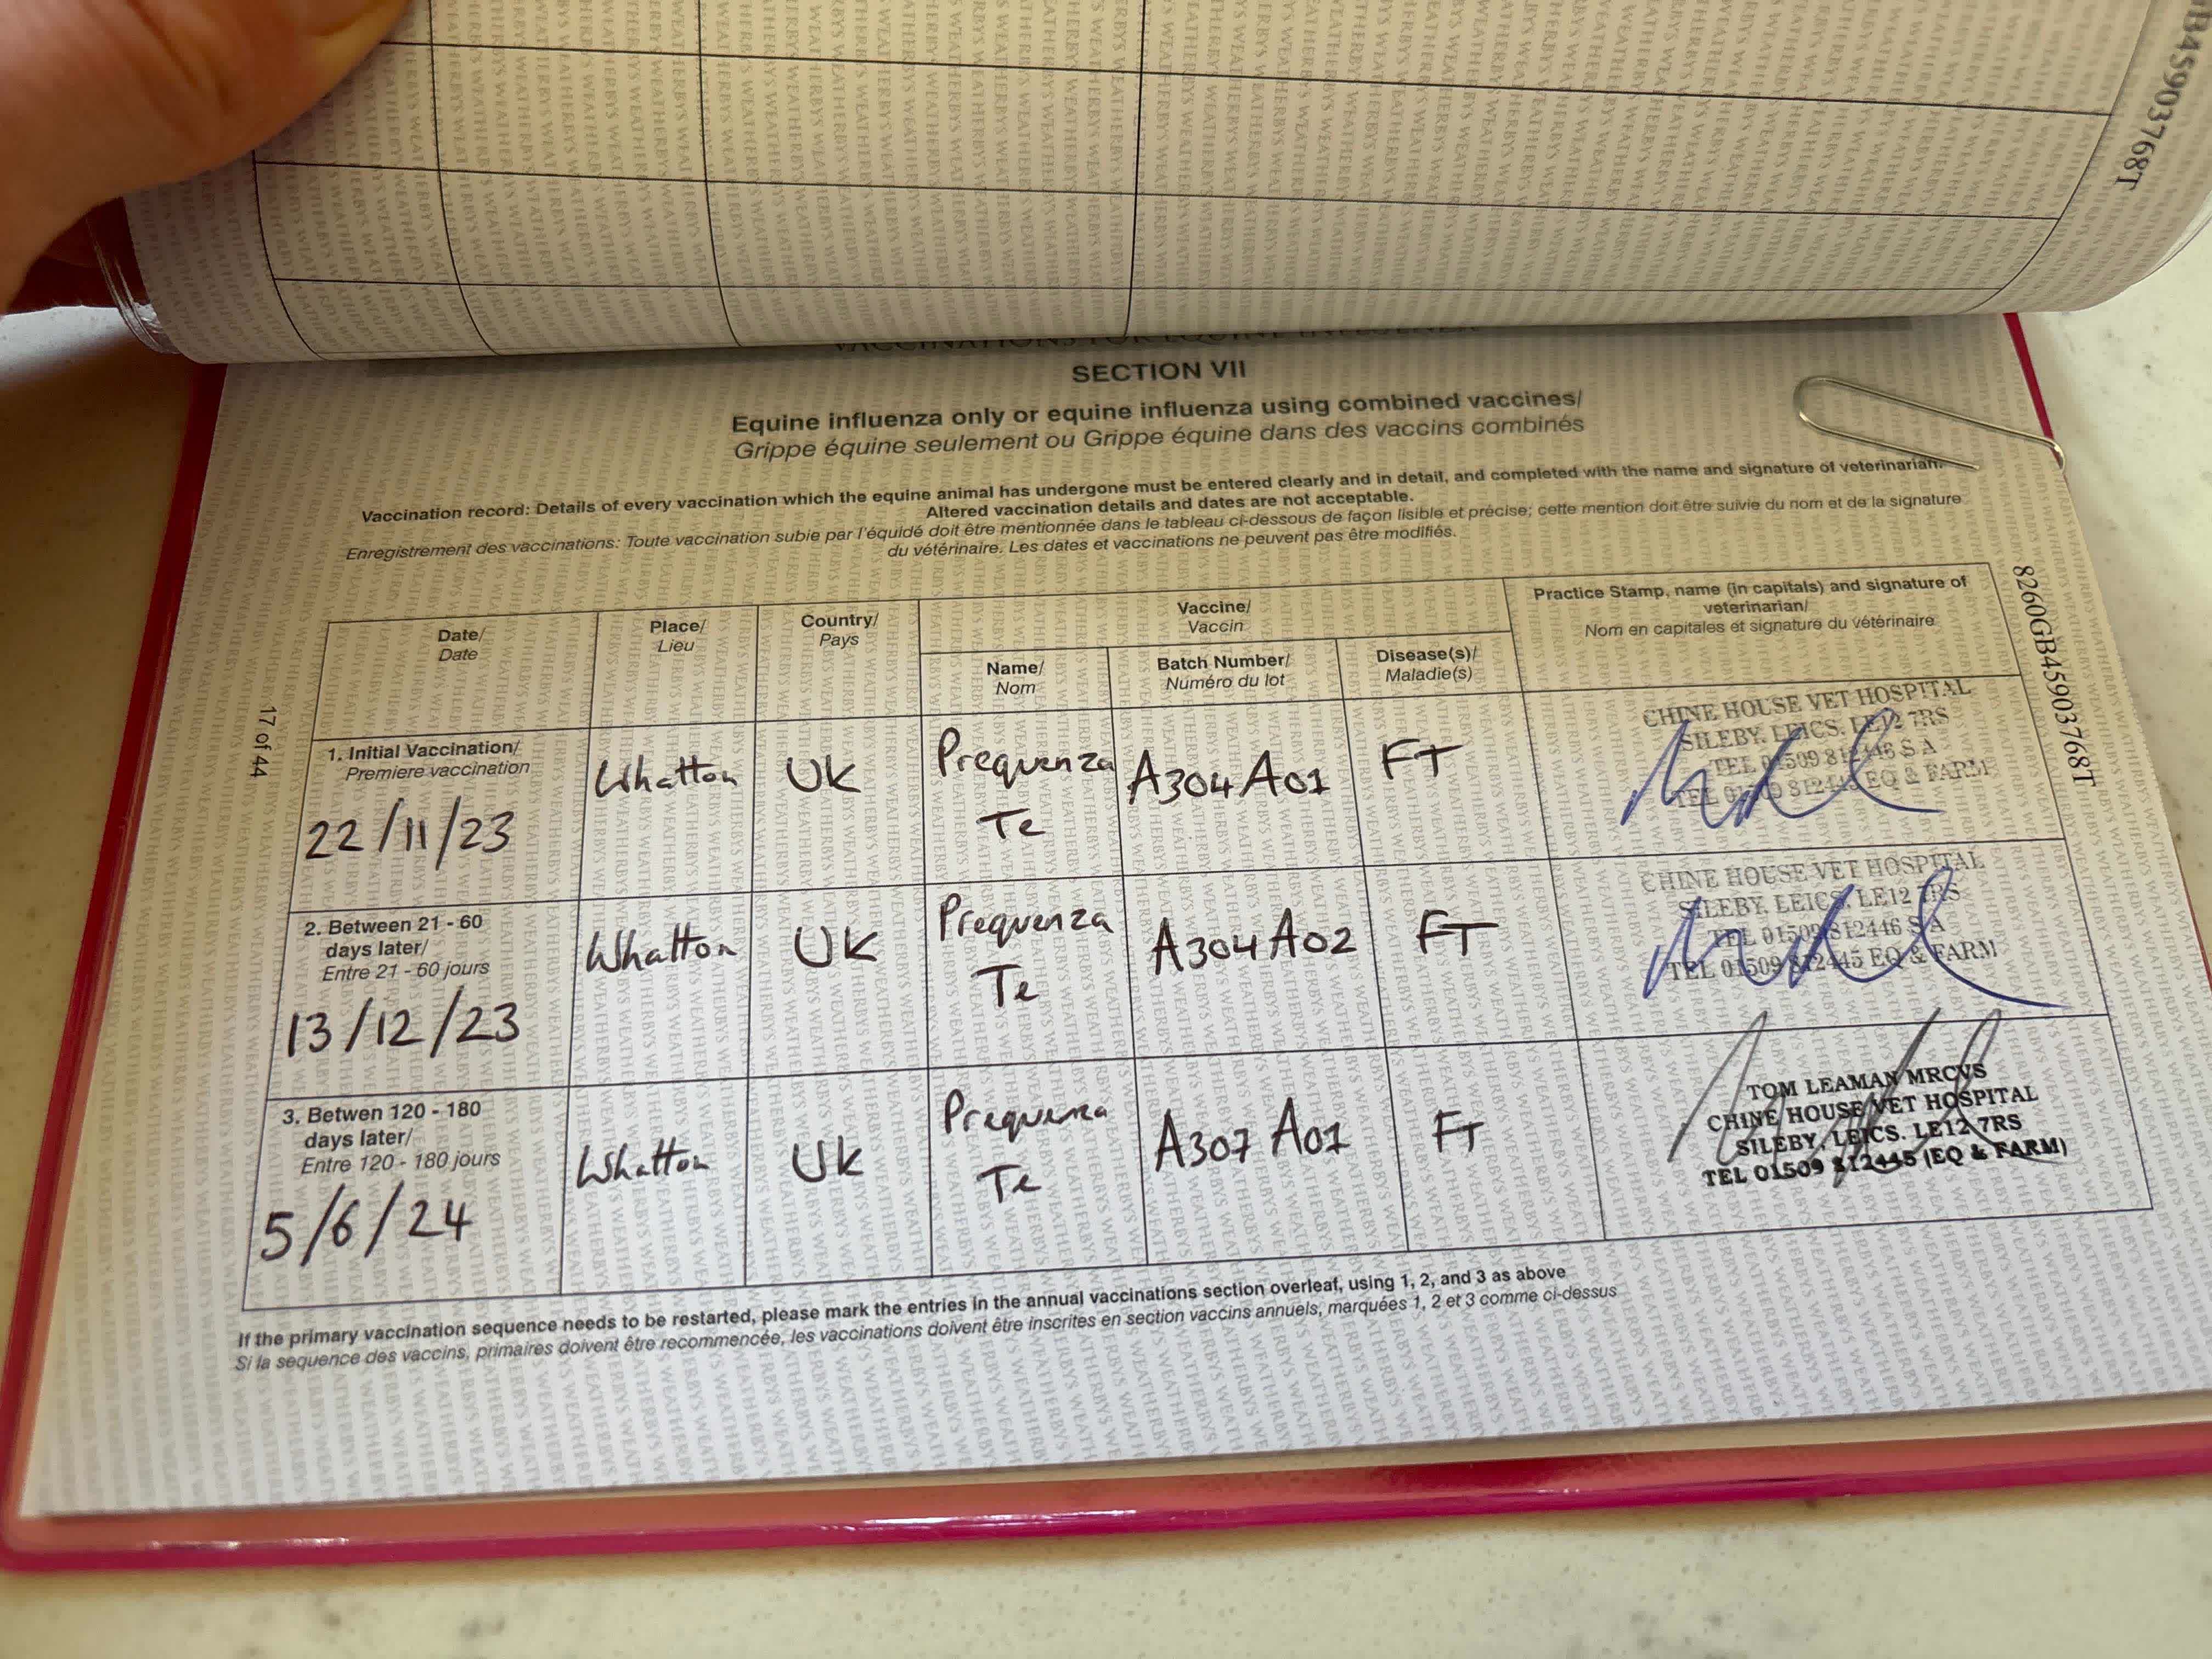 B45903768T
SECTION VII
Equine influenza only or equine influenza using combined vaccines/
Grippe équine seulement ou Grippe équine dans des vaccins combinés
Vaccination record: Details of every vaccination which the equine animal has undergone must be entered clearly and in detail, and completed with the name and signature of veterinarian.
Altered vaccination details and dates are not acceptable.
Enregistrement des vaccinations: Toute vaccination subie par l'équidé doit être mentionnée dans le tableau ci-dessous de façon lisible et précise; cette mention doit être suivie du nom et de la signature
du vétérinaire. Les dates et vaccinations ne peuvent pas être modifiés.
Date/
Date
Place/
Lieu
Country/
Pays
Vaccine/
Vaccin
Name/
Nom
Batch Number/
Numéro du lot
Disease(s)/
Maladie(s)
Practice Stamp, name (in capitals) and signature of
veterinarian/
Nom en capitales et signature du vétérinaire
1. Initial Vaccination/
Premiere vaccination
22/11/23
Whatton
UK
Prequenza
Te
A304A01
FT
CHINE HOUSE VET HOSPITAL
SILEBY, LEICS. LE12 7RS
TEL 01509 812446 S A
TEL 01509 812445 EQ & FARM
2. Between 21 - 60
days later/
Entre 21 - 60 jours
13/12/23
Whatton
UK
Prequenza
Te
A304A02
FT
CHINE HOUSE VET HOSPITAL
SILEBY, LEICS. LE12 7RS
TEL 01509 812446 S A
TEL 01509 812445 EQ & FARM
3. Betwen 120 - 180
days later/
Entre 120 - 180 jours
5/6/24
Whatton
UK
Prequenza
Te
A307 A01
FT
TOM LEAMAN MRCVS
CHINE HOUSE VET HOSPITAL
SILEBY, LEICS. LE12 7RS
TEL 01509 812445 (EQ & FARM)
If the primary vaccination sequence needs to be restarted, please mark the entries in the annual vaccinations section overleaf, using 1, 2, and 3 as above
Si la sequence des vaccins, primaires doivent être recommencée, les vaccinations doivent être inscrites en section vaccins annuels, marquées 1, 2 et 3 comme ci-dessus
17 of 44
8260GB45903768T